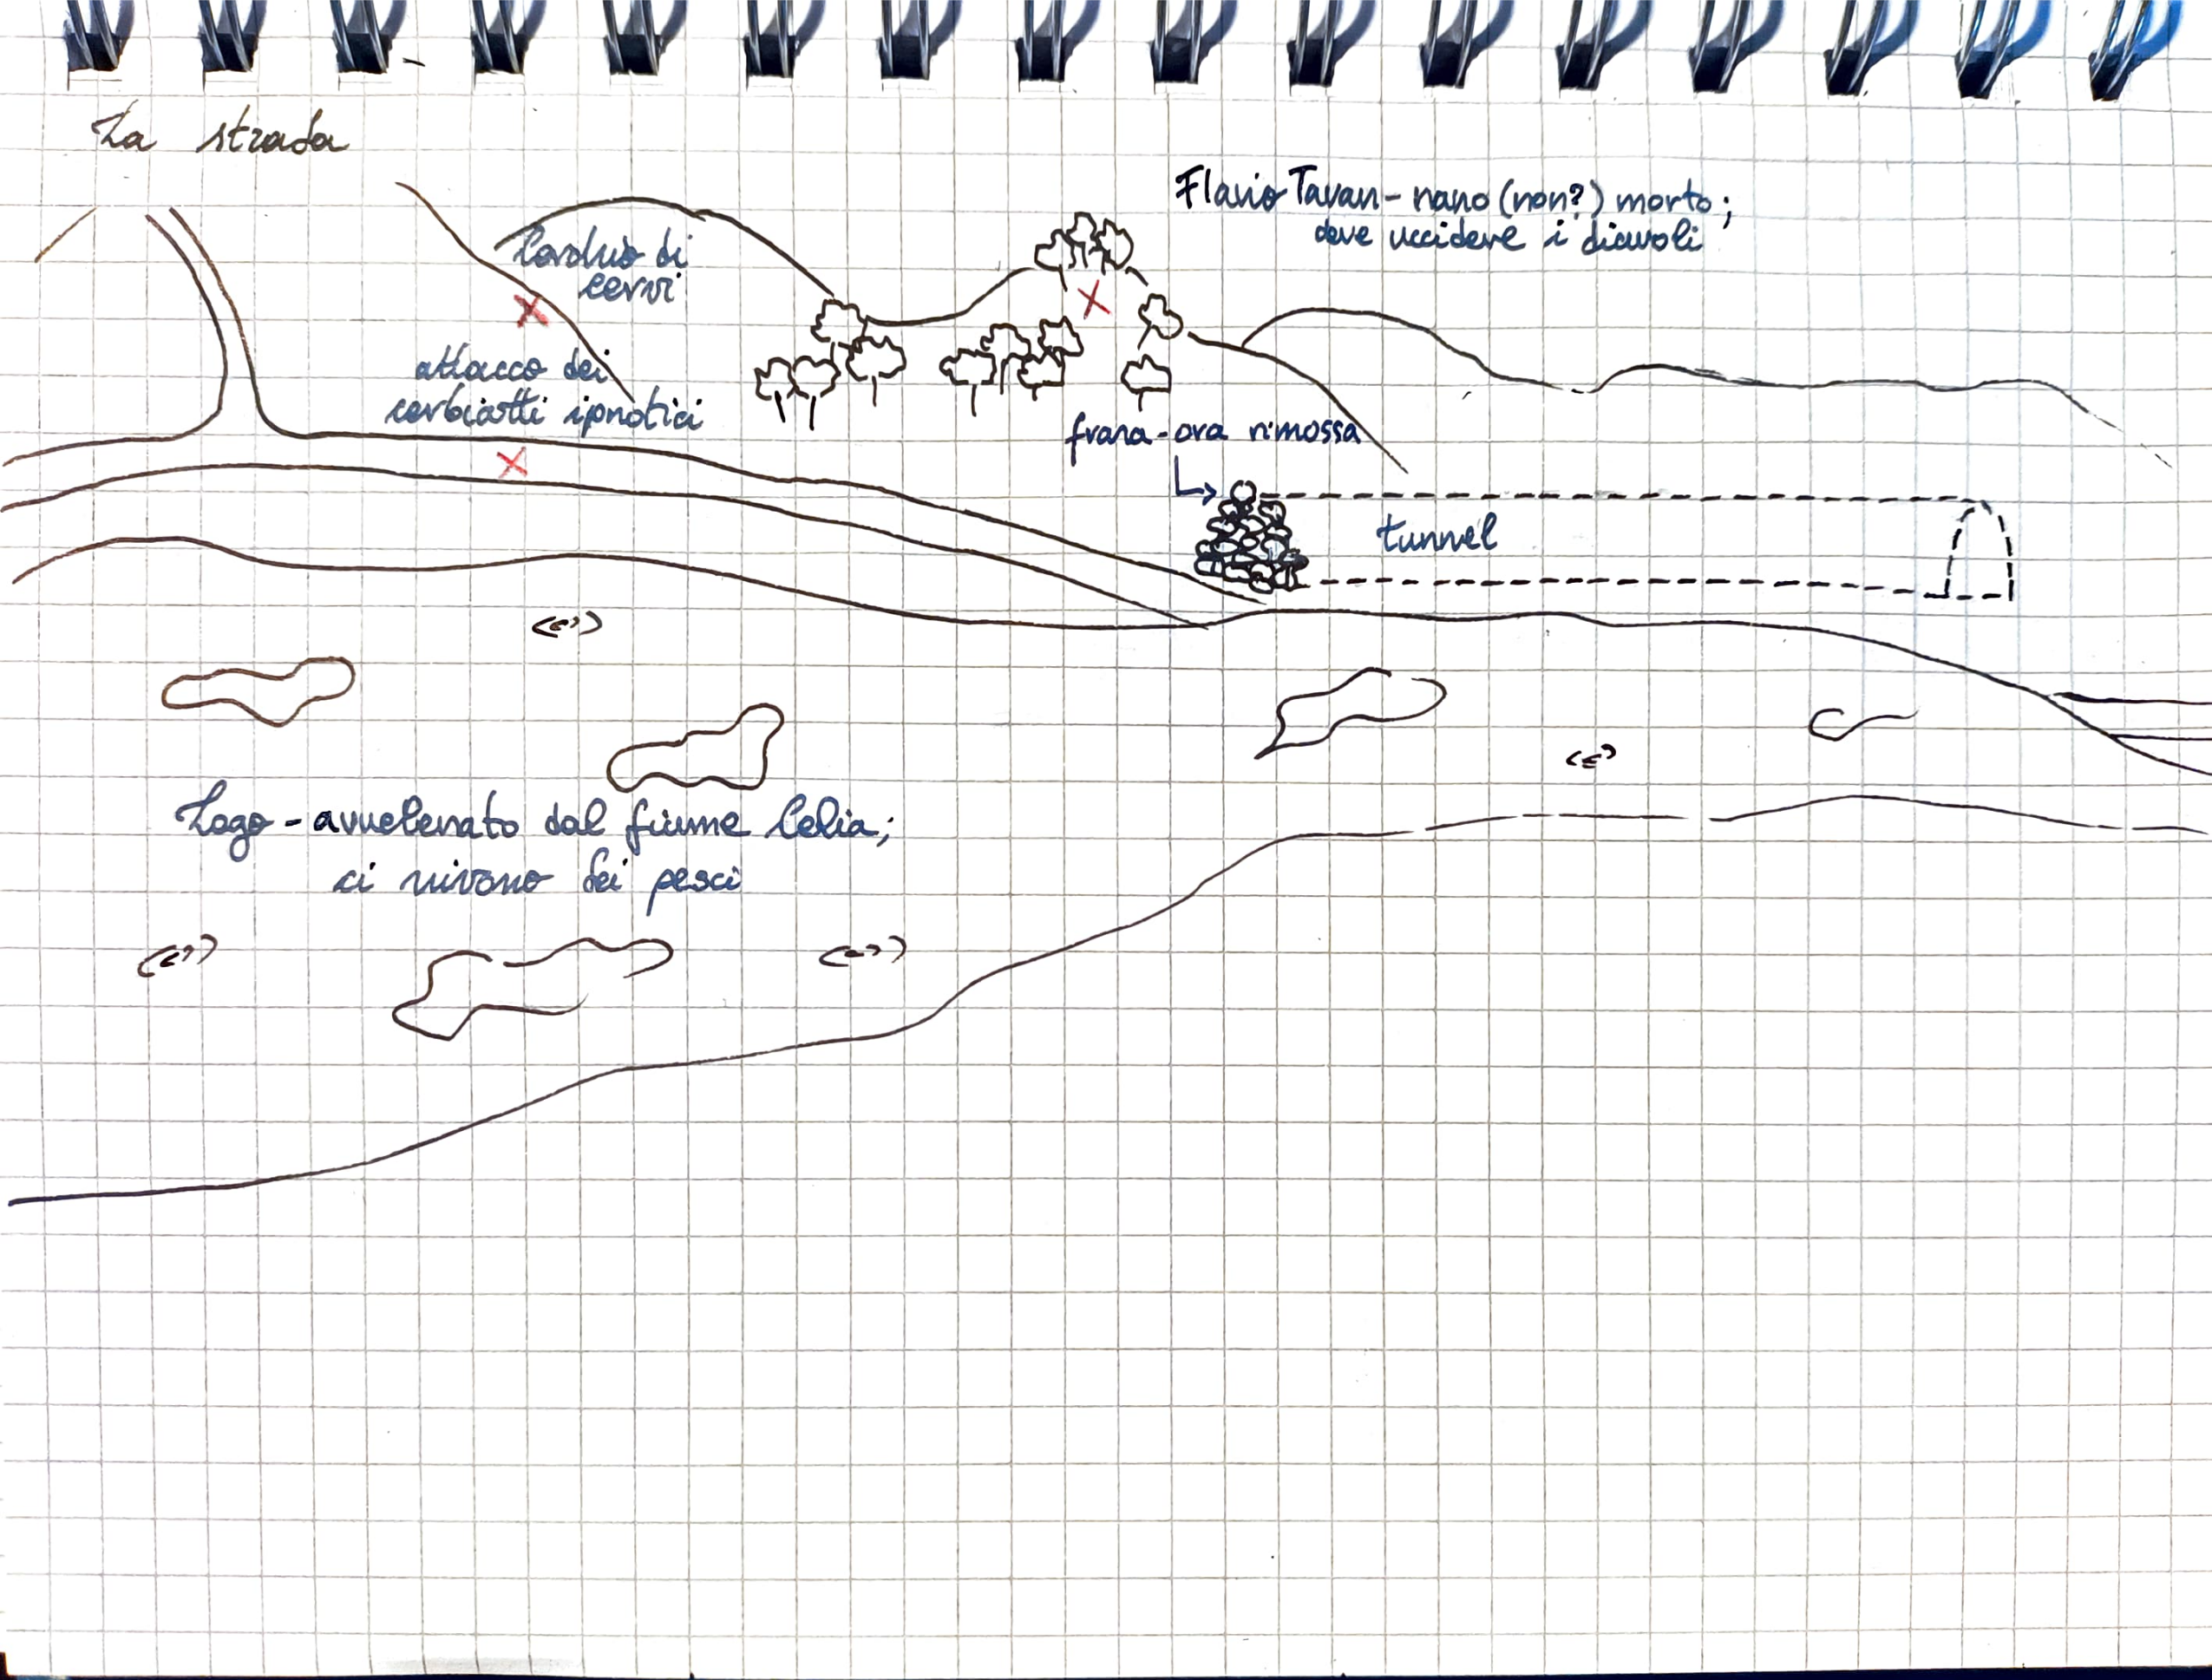 La strada
Flavio Tavan - nano (non?) morto;
deve uccidere i diavoli
Cerchio di
cervi
attacco dei
cerbiatti ipnotici
frana - ora rimossa
tunnel
Lago - avvelenato dal fiume Celia;
ci vivono dei pesci